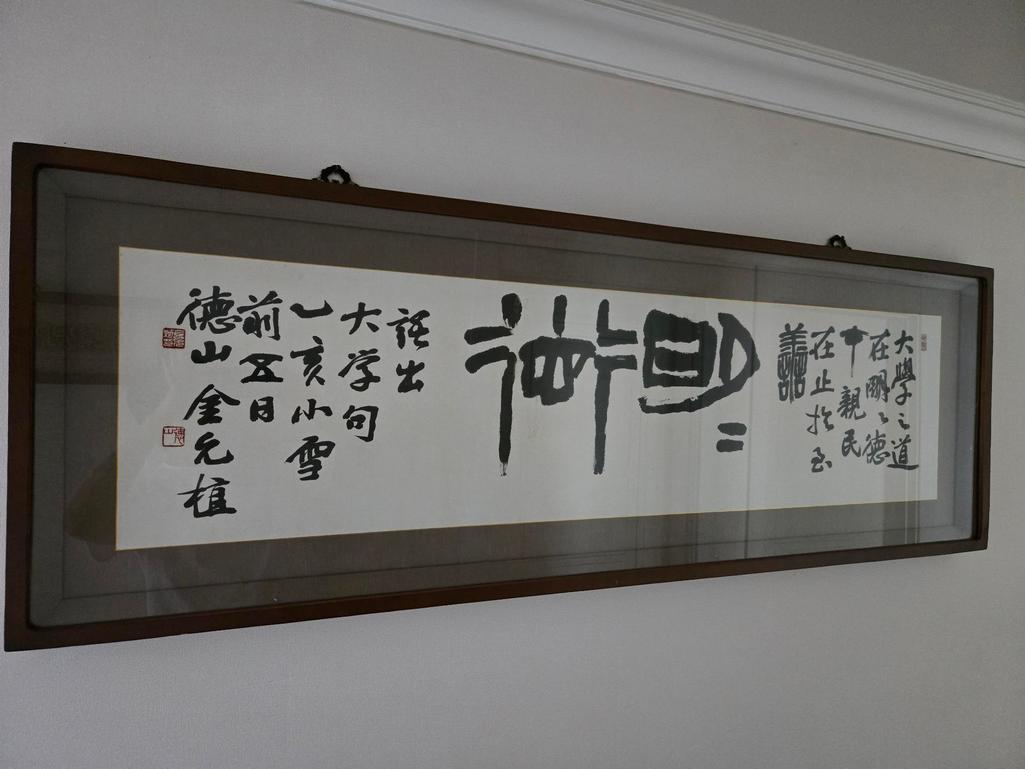 大學之道
在明〻德
在親民
在止於至
善
明〻德
語出
大学句
乙亥小雪
前五日
德山金元植